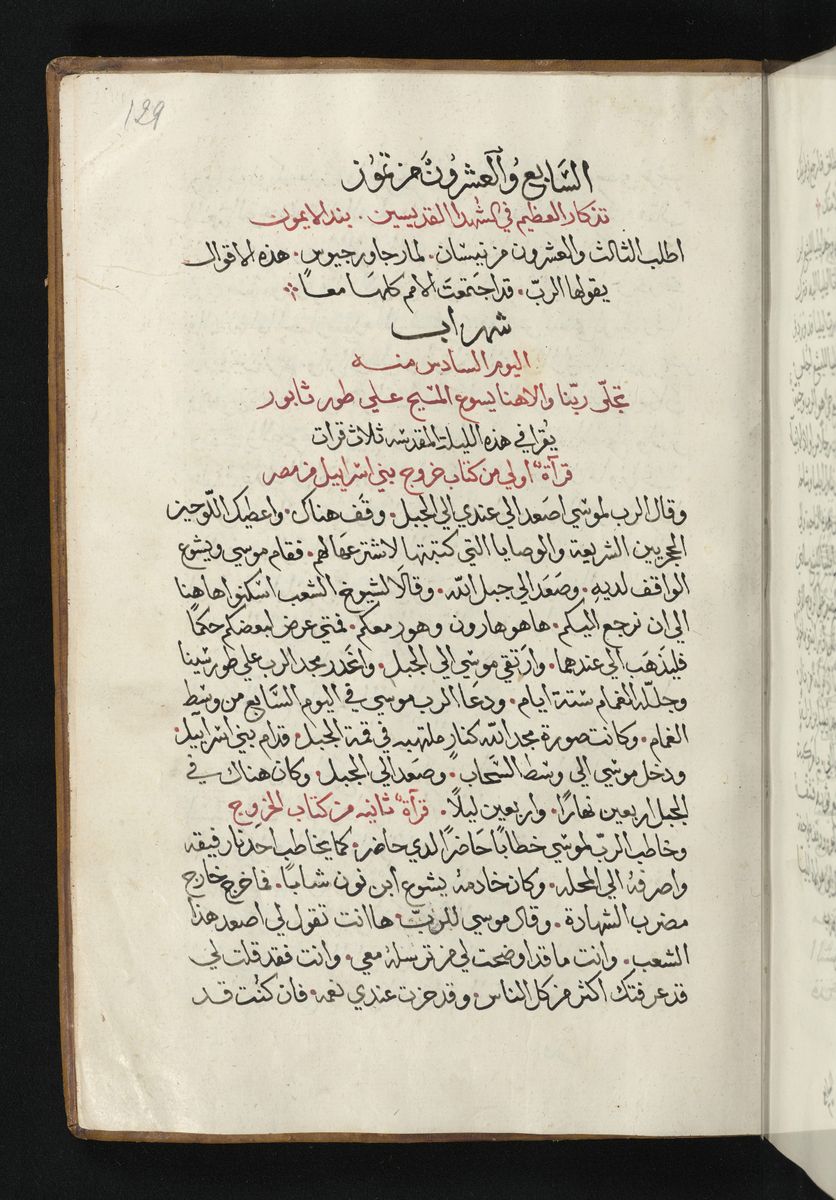 129
السَّابع وُالعشرُونَ من تموُز
تذكار العظيم في الشهدا القديسين . بندالايمون
اطلب الثالث والعشرون من نيسان . لمار جاورجيوس . هذه الاقوال
يقولها الربّ . قد اجتمعتَ الامم كلهَا معاً
شهر اب
اليوم السادس منه
تجلّى ربّنا والاهنا يسوع المسَيح علي طور ثابور
يُقرا في هذه الليلة المقدسه ثلاث قرات
قرآة اولي من كتاب خروج بني اسراييل من مصر
وقال الرب لموسي اصعد الي عندي الي الجبل . وقف هناك . واعطيك اللّوحين
الحجريين الشريعة والوصايا التي كتبتها لاشترعهَا لهم . فقام موسي ويشوع
الواقف لديهِ . وصَعَد الي جبل الله . وقالَا لشيوخ الشعب اسَكنوا هاهنا
الي ان نرجع اليكم . هاهو هارون وهور معكم . فمتي عرض لبعضكم حكمًا
فليذهَب الي عندهما . وارَتقي موسي الي الجبل . وانحَدر مجد الرب علي طور سَينا
وجلله الغمام ستة ايام . ودعَا الرب موسي في اليوم السَّابع من وسَط
الغمام . وكانت صورة مجد الله كنارٍ ملتهبه في قمة الجبل . قدام بني اسراييل .
ودخل موسَي الي وسط السَّحاب . وصَعد الي الجبل . وكان هناك في
الجبل اربعين نهارًا . واربعين ليلًا . قرآة ثانيه من كتاب الخروج
وخاطب الربّ لموسَي خطابًا حَاضرًا لدي حاضر . كما يخاطب احدنا رفيقه
واصرفهُ الي المحله . وكان خادمهُ يشوع ابن نون شابًا . فاخرج خارج
مضرب الشهادة . وقال موسي للربّ . ها انت تقول لي اصعد هذا
الشعب . وانت ما قد اوضحت لي من ترسلهُ معي . وانت فقد قلت لي
قد عرفتك اكثر من كل الناس . وقد حزت عندي نعمه . فان كنُت قد